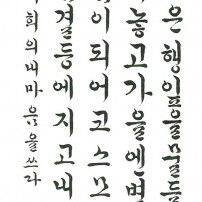 은행잎을물들
놓고가을엔벚
이되어코스모
결등에지고내
희의내마음을쓰다